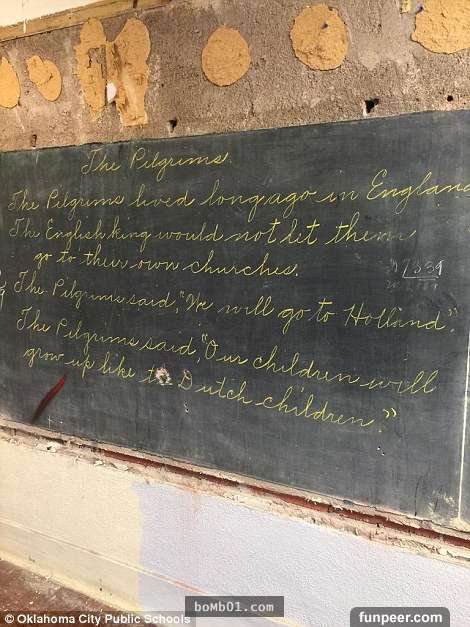 The Pilgrims.
The Pilgrims lived long ago in England
The English king would not let them
go to their own churches.
The Pilgrims said, "We will go to Holland."
The Pilgrims said, "Our children will
grow up like the Dutch children."
© Oklahoma City Public Schools
boMb01.com
funpeer.com